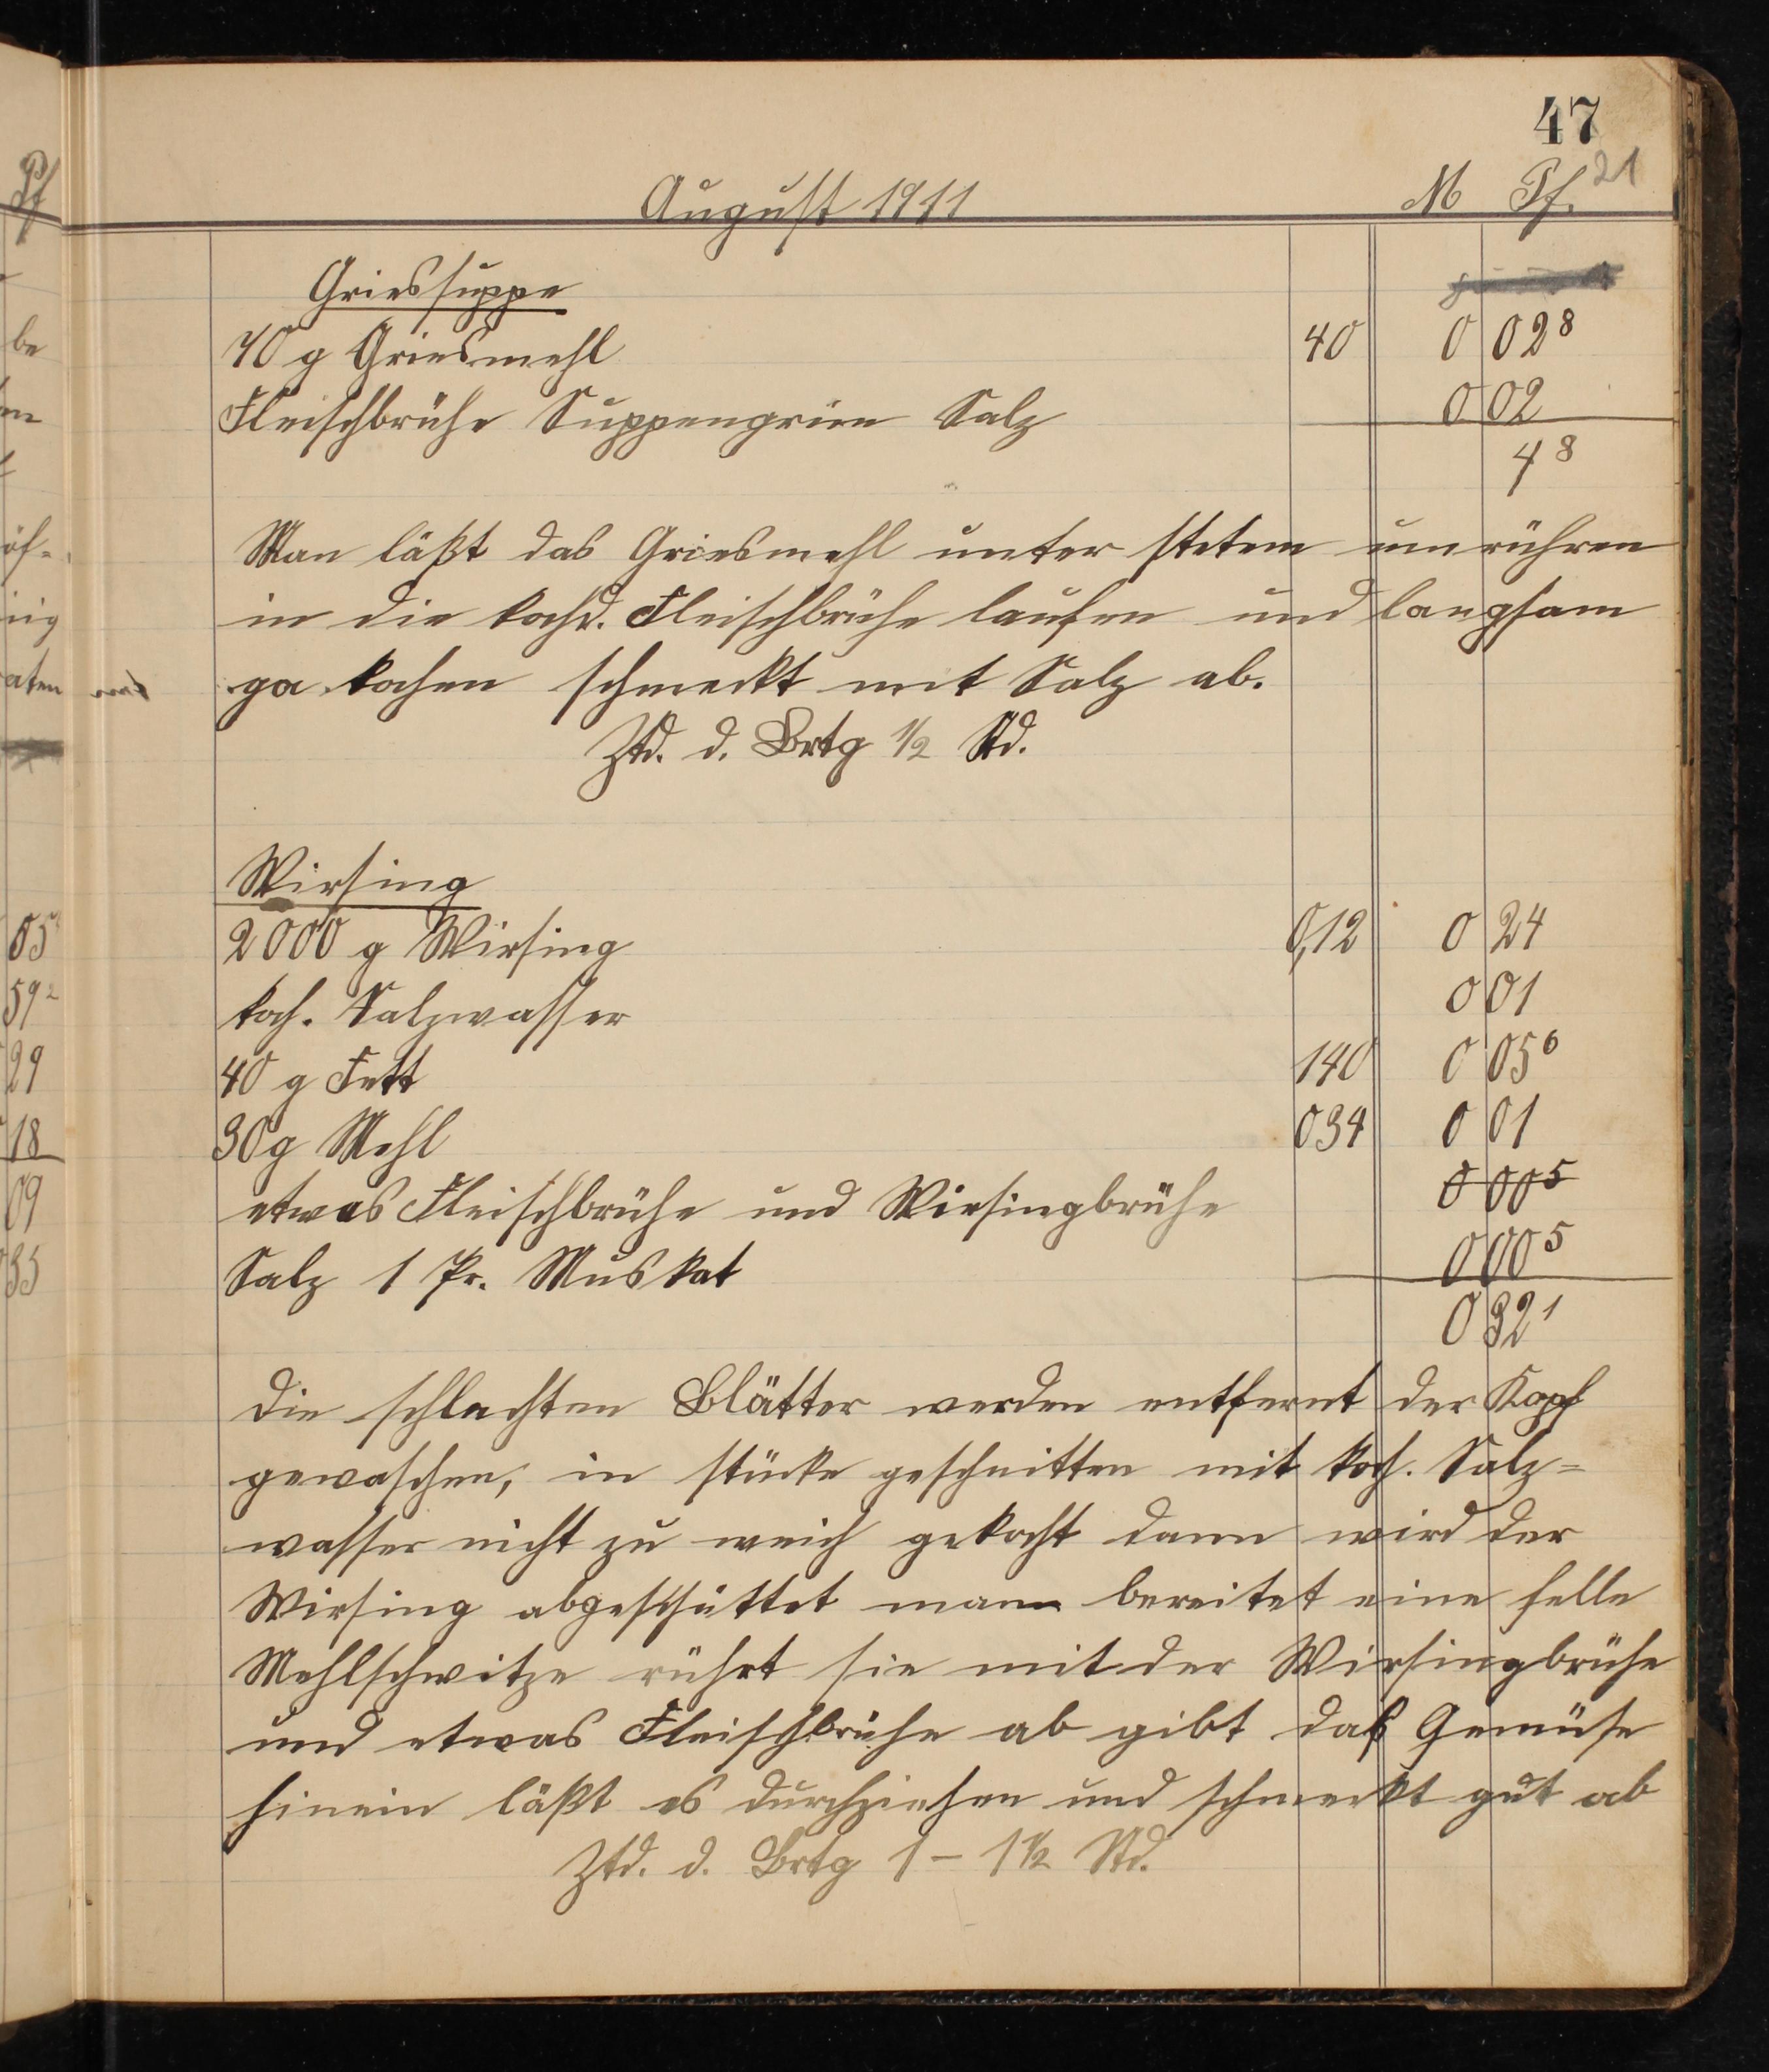 47
21
August 1911 M Pf.
Griessuppe
70 g Griesmehl 40 0 02 8
Fleischbrühe Suppengrün Salz 0 02
4 8
Man läßt das Griesmehl unter stetem umrühren
in die kochd. Fleischbrühe laufen und langsam
ga kochen schmeckt mit Salz ab.
Ztd. d. Brtg 1/2 Std.
Wirsing
2000 g Wirsing 0,12 0 24
koch. Salzwasser 0 01
40 g Fett 140 0 05 6
30 g Mehl 034 0 01
etwas Fleischbrühe und Wirsingbrühe 0 00 5
Salz 1 Pr. Muskat 0 00 5
0 32 1
die schlechten Blätter werden entfernt der Kopf
gewaschen, in stücke geschnitten mit koch. Salz=
wasser nicht zu weich gekocht dann wird der
Wirsing abgeschüttet mann bereitet eine helle
Mehlschwitze rührt sie mit der Wirsingbrühe
und etwas Fleischbrühe ab gibt daß Gemüse
hinein läßt es durchziehen und schmeckt gut ab
Ztd. d. Brtg 1 – 1 1/2 Std.